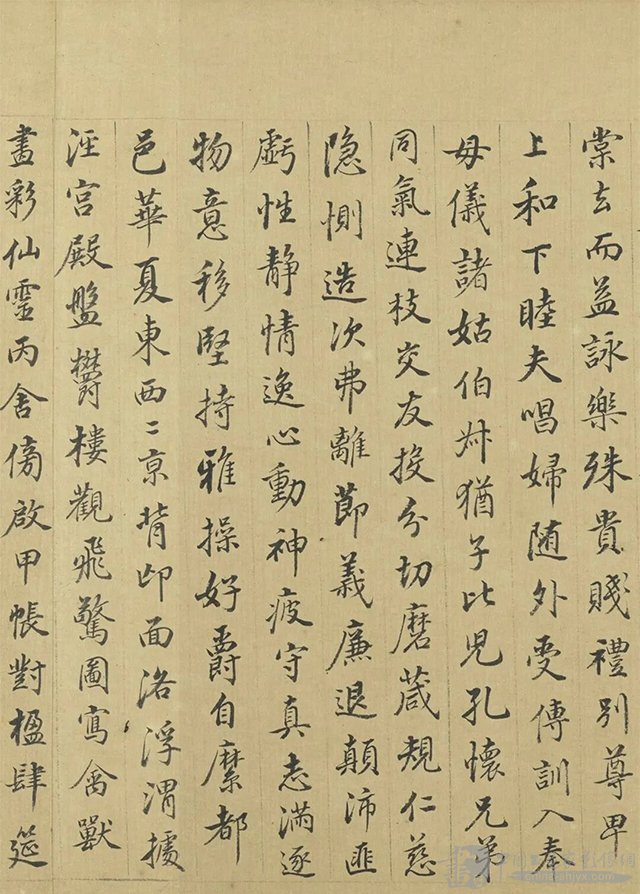 棠去而益詠樂殊貴賤禮別尊卑
上和下睦夫唱婦随外受傅訓入奉
母儀諸姑伯叔猶子比兒孔懷兄弟
同氣連枝交友投分切磨箴規仁慈
隐惻造次弗離節義廉退顛沛匪
虧性静情逸心動神疲守真志滿逐
物意移堅持雅操好爵自縻都
邑華夏東西二京背邙面洛浮渭據
涇宮殿盤欝樓觀飛驚圖寫禽獸
畫彩仙靈丙舍傍啟甲帳對楹肆筵